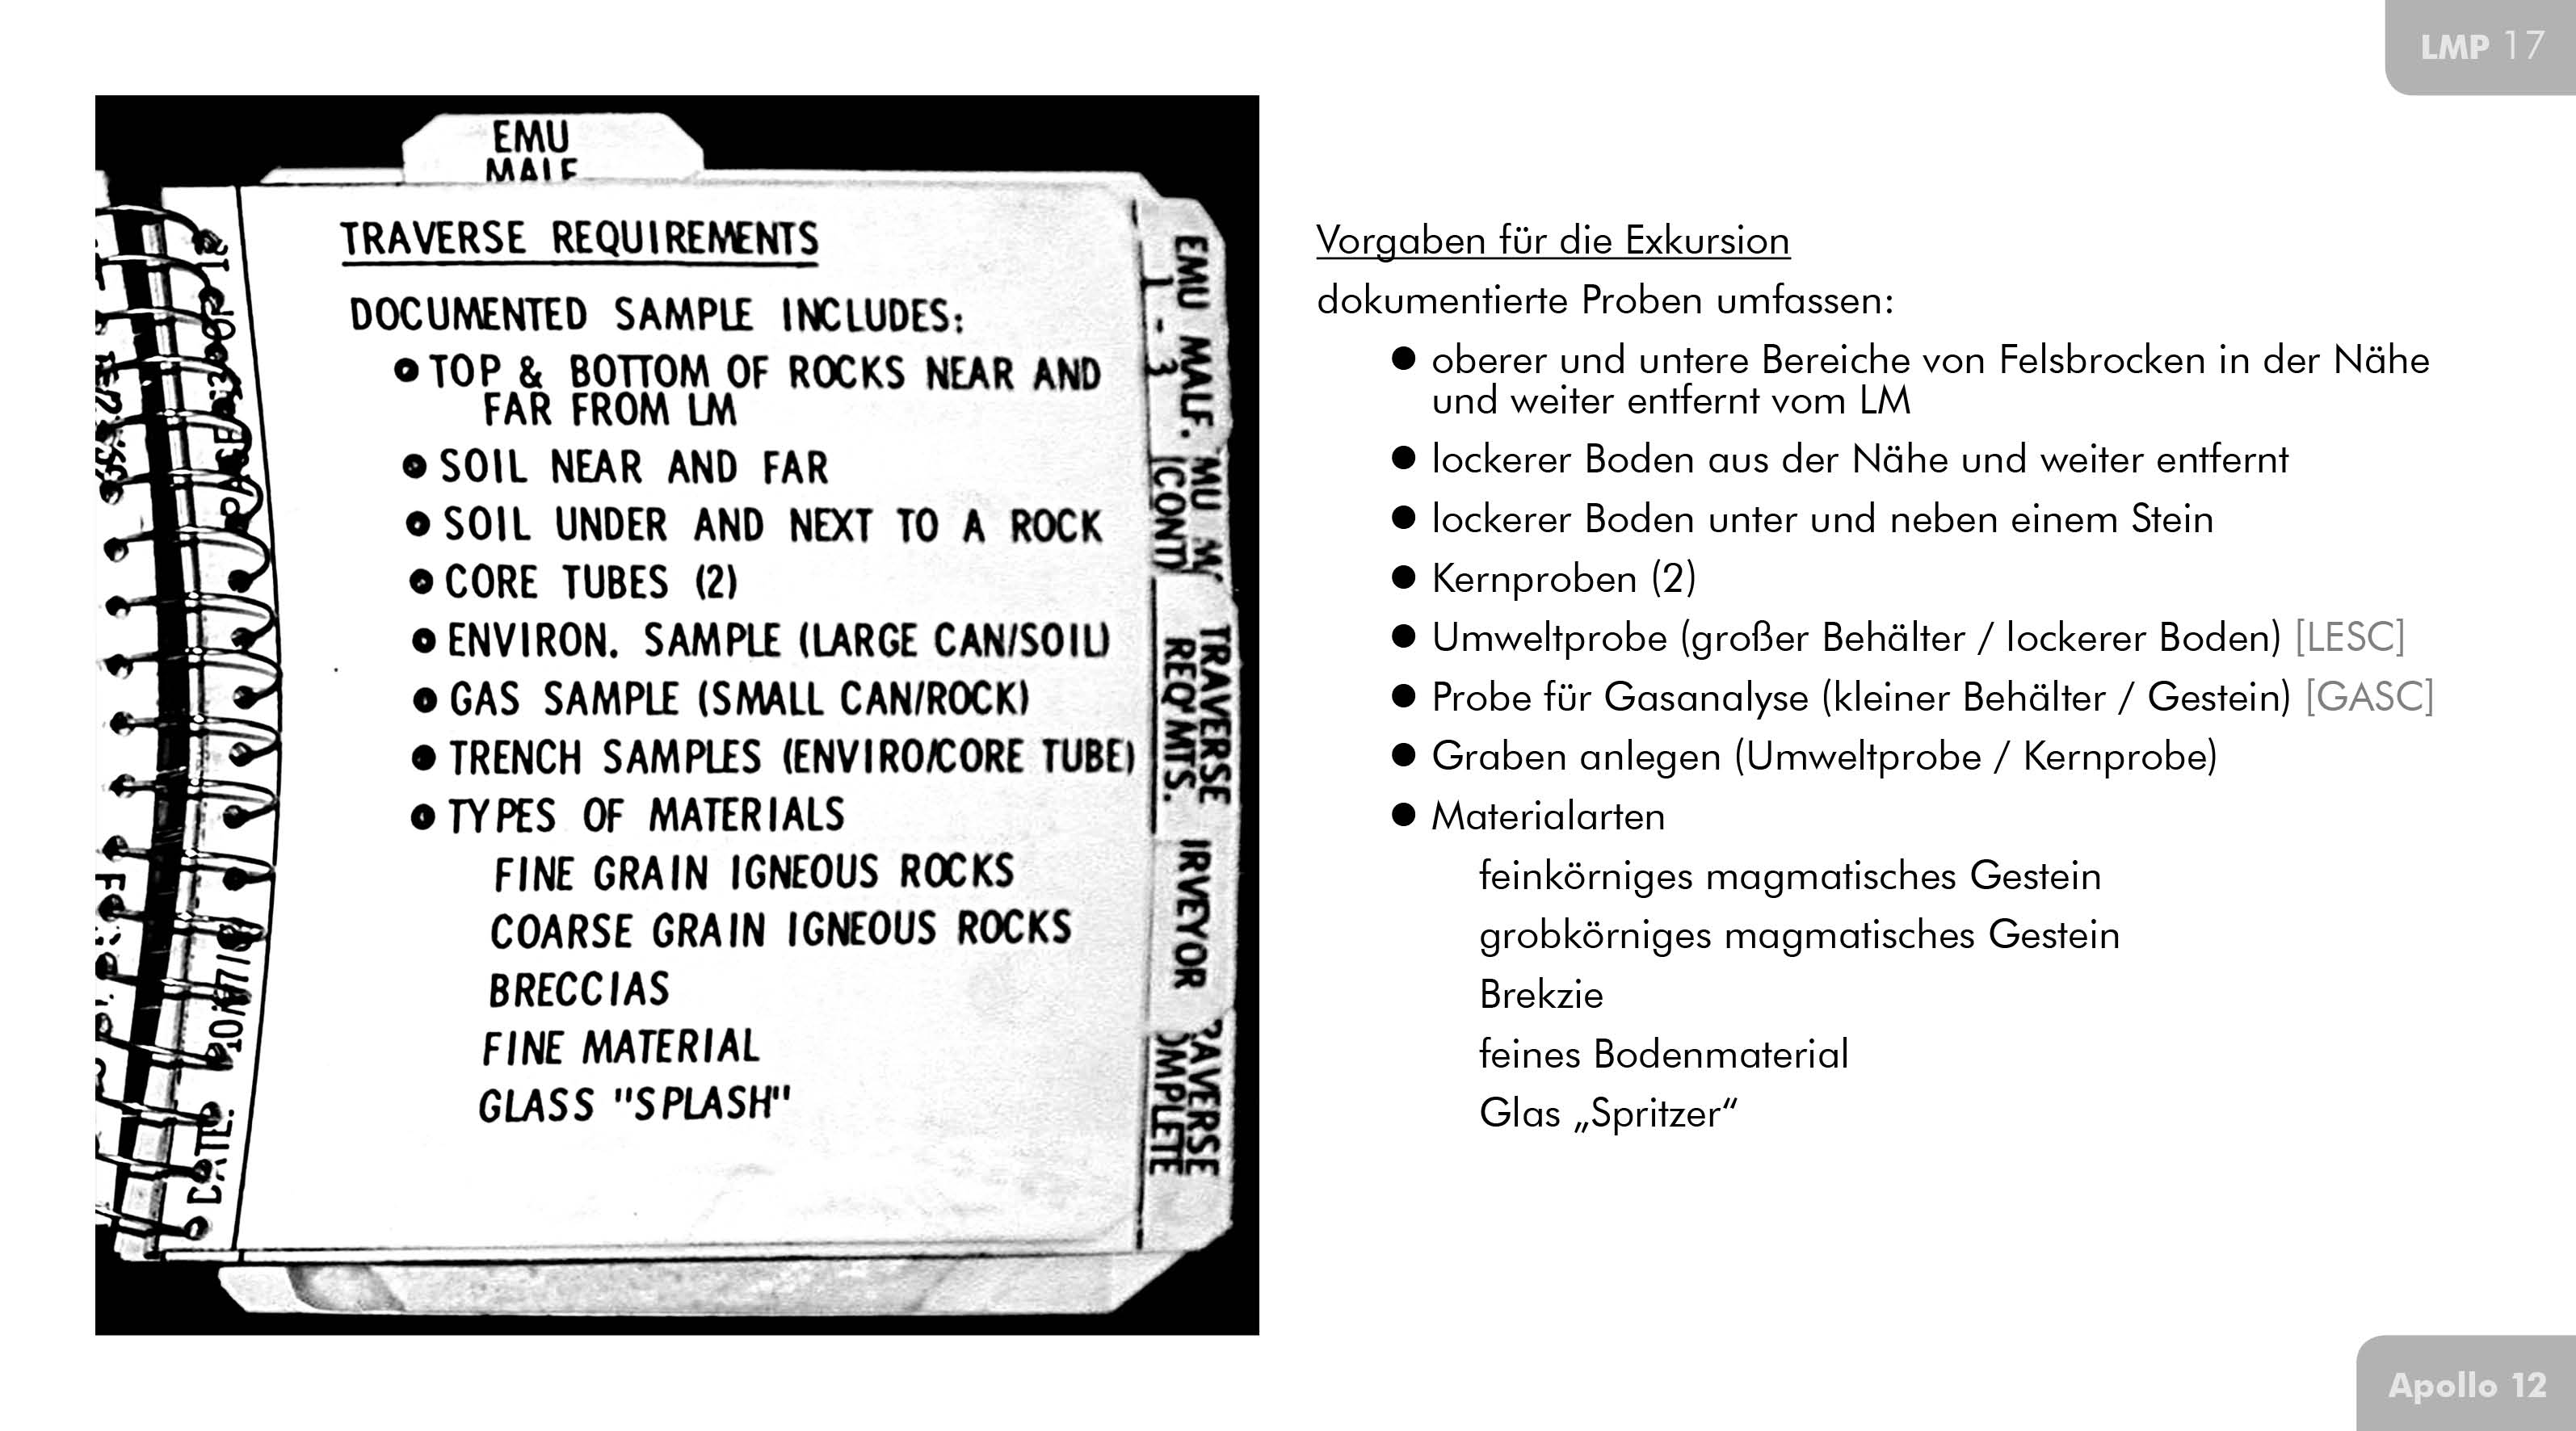 LMP 17
EMU
TRAVERSE REQUIREMENTS
DOCUMENTED SAMPLE INCLUDES:
● TOP & BOTTOM OF ROCKS NEAR AND
FAR FROM LM
● SOIL NEAR AND FAR
● SOIL UNDER AND NEXT TO A ROCK
● CORE TUBES (2)
● ENVIRON. SAMPLE (LARGE CAN/SOIL)
● GAS SAMPLE (SMALL CAN/ROCK)
● TRENCH SAMPLES (ENVIRO/CORE TUBE)
● TYPES OF MATERIALS
FINE GRAIN IGNEOUS ROCKS
COARSE GRAIN IGNEOUS ROCKS
BRECCIAS
FINE MATERIAL
GLASS "SPLASH"
EMU MALF.
1 - 3
(CONT)
TRAVERSE
REQ'MTS.
IRVEYOR
RAVERSE
OMPLETE
Vorgaben für die Exkursion
dokumentierte Proben umfassen:
● oberer und untere Bereiche von Felsbrocken in der Nähe
und weiter entfernt vom LM
● lockerer Boden aus der Nähe und weiter entfernt
● lockerer Boden unter und neben einem Stein
● Kernproben (2)
● Umweltprobe (großer Behälter / lockerer Boden) [LESC]
● Probe für Gasanalyse (kleiner Behälter / Gestein) [GASC]
● Graben anlegen (Umweltprobe / Kernprobe)
● Materialarten
feinkörniges magmatisches Gestein
grobkörniges magmatisches Gestein
Brekzie
feines Bodenmaterial
Glas „Spritzer“
Apollo 12